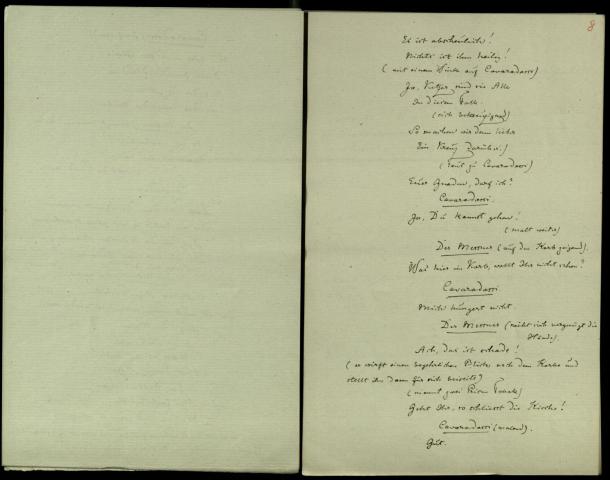 8
Es ist abscheulich!
Nichts ist ihm heilig!
(mit einem Winke auf Cavaradossi)
Ja, Ketzer sind sie Alle
In diesem Falle.
(sich bekreuzigend)
So machen wir denn lieber
Ein Kreuz darüber.)
(laut zu Cavaradossi)
Euer Gnaden, darf ich?
Cavaradossi.
Ja, Du kannst gehen!
(malt weiter)
Der Messner (auf den Korb zeigend).
Was hier im Korb, wollt Ihr nicht sehen?
Cavaradossi.
Mich hungert nicht.
Der Messner (reibt sich vergnügt die
Hände).
Ach, das ist schade!
(er wirft einen begehrlichen Blick nach dem Korbe und
stellt ihn dann für sich beiseite)
(nimmt zwei Prisen Tabak)
Geht Ihr, so schliesst die Kirche!
Cavaradossi (malend).
Gut.